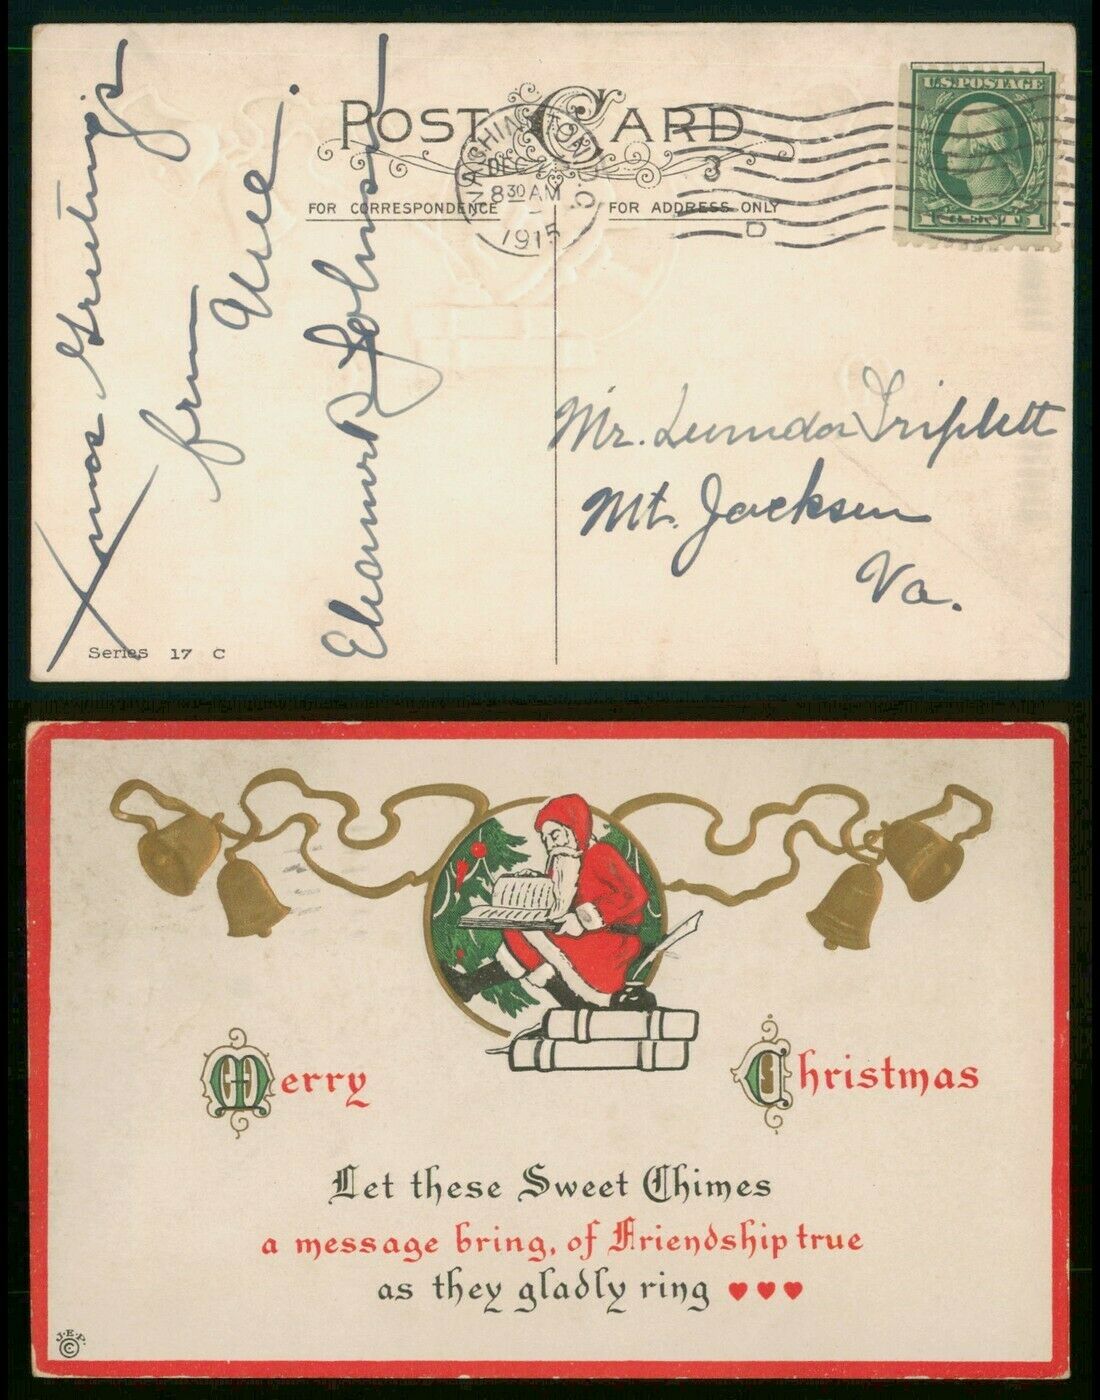 POST CARD
WASHINGTON, D.C.
DEC
8 30 AM
1915
3
D
U.S. POSTAGE
1 CENT 1
FOR CORRESPONDENCE
FOR ADDRESS ONLY
Xmas Greetings
from
Eleanor R Johnson
Mr. Triplett
Mt. Jackson
Va.
Series 17 C
Merry Christmas
Let these Sweet Chimes
a message bring, of Friendship true
as they gladly ring ♥♥♥
J.E.P.
©